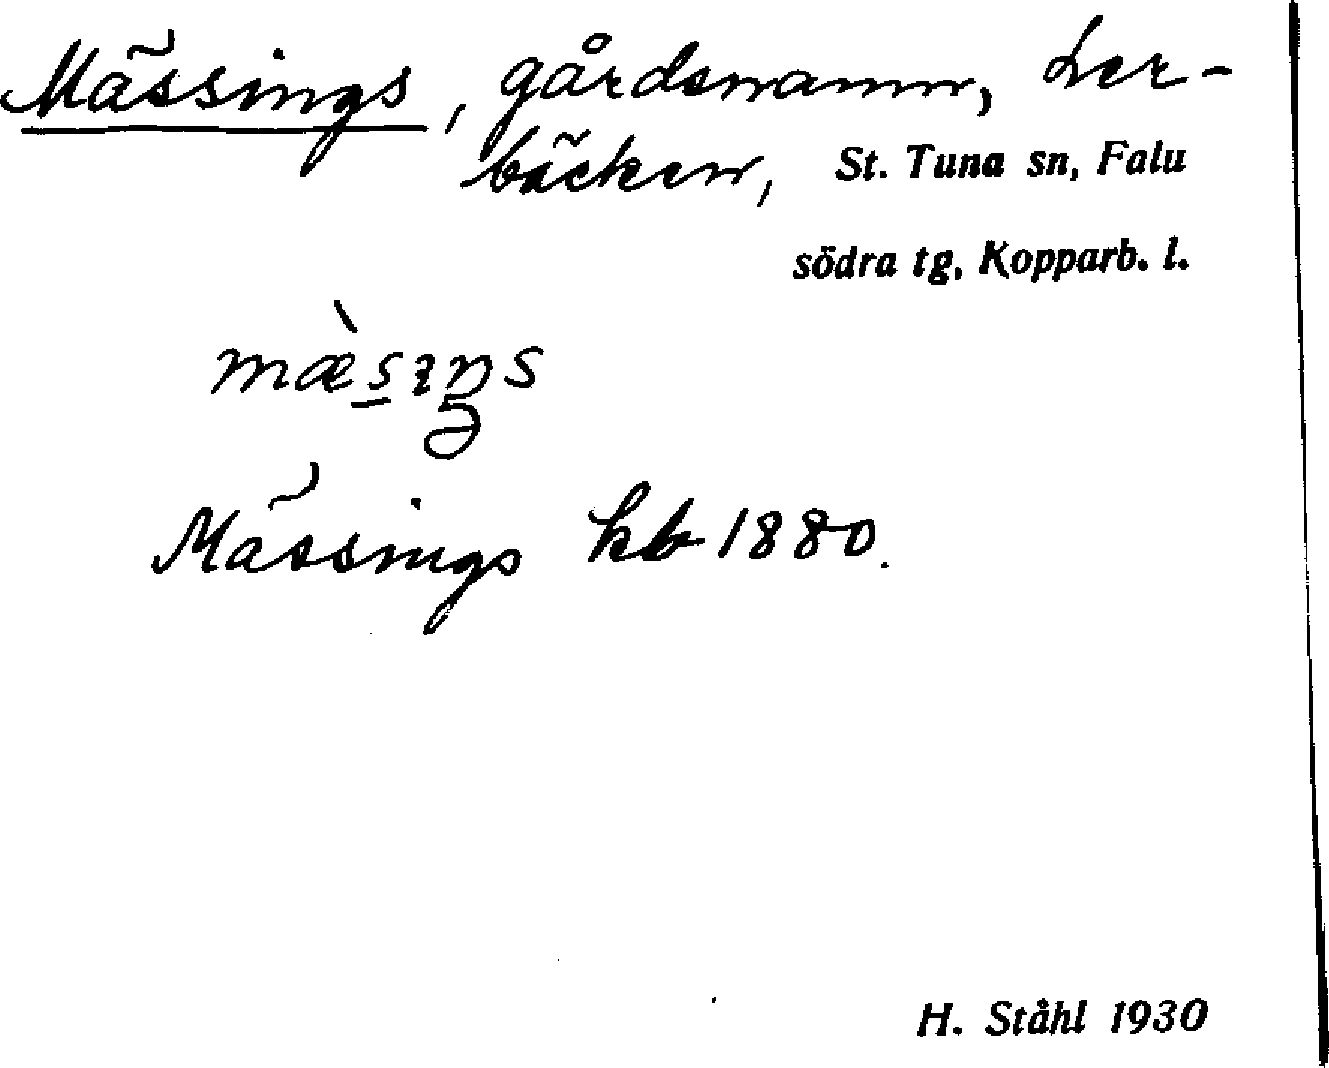 Mässings, gårdsnamn, Ler-
bäcken, St. Tuna sn, Falu
södra tg, Kopparb. l.
mæ̀s̠ıŋs
Mässings kb 1880.
H. Ståhl 1930